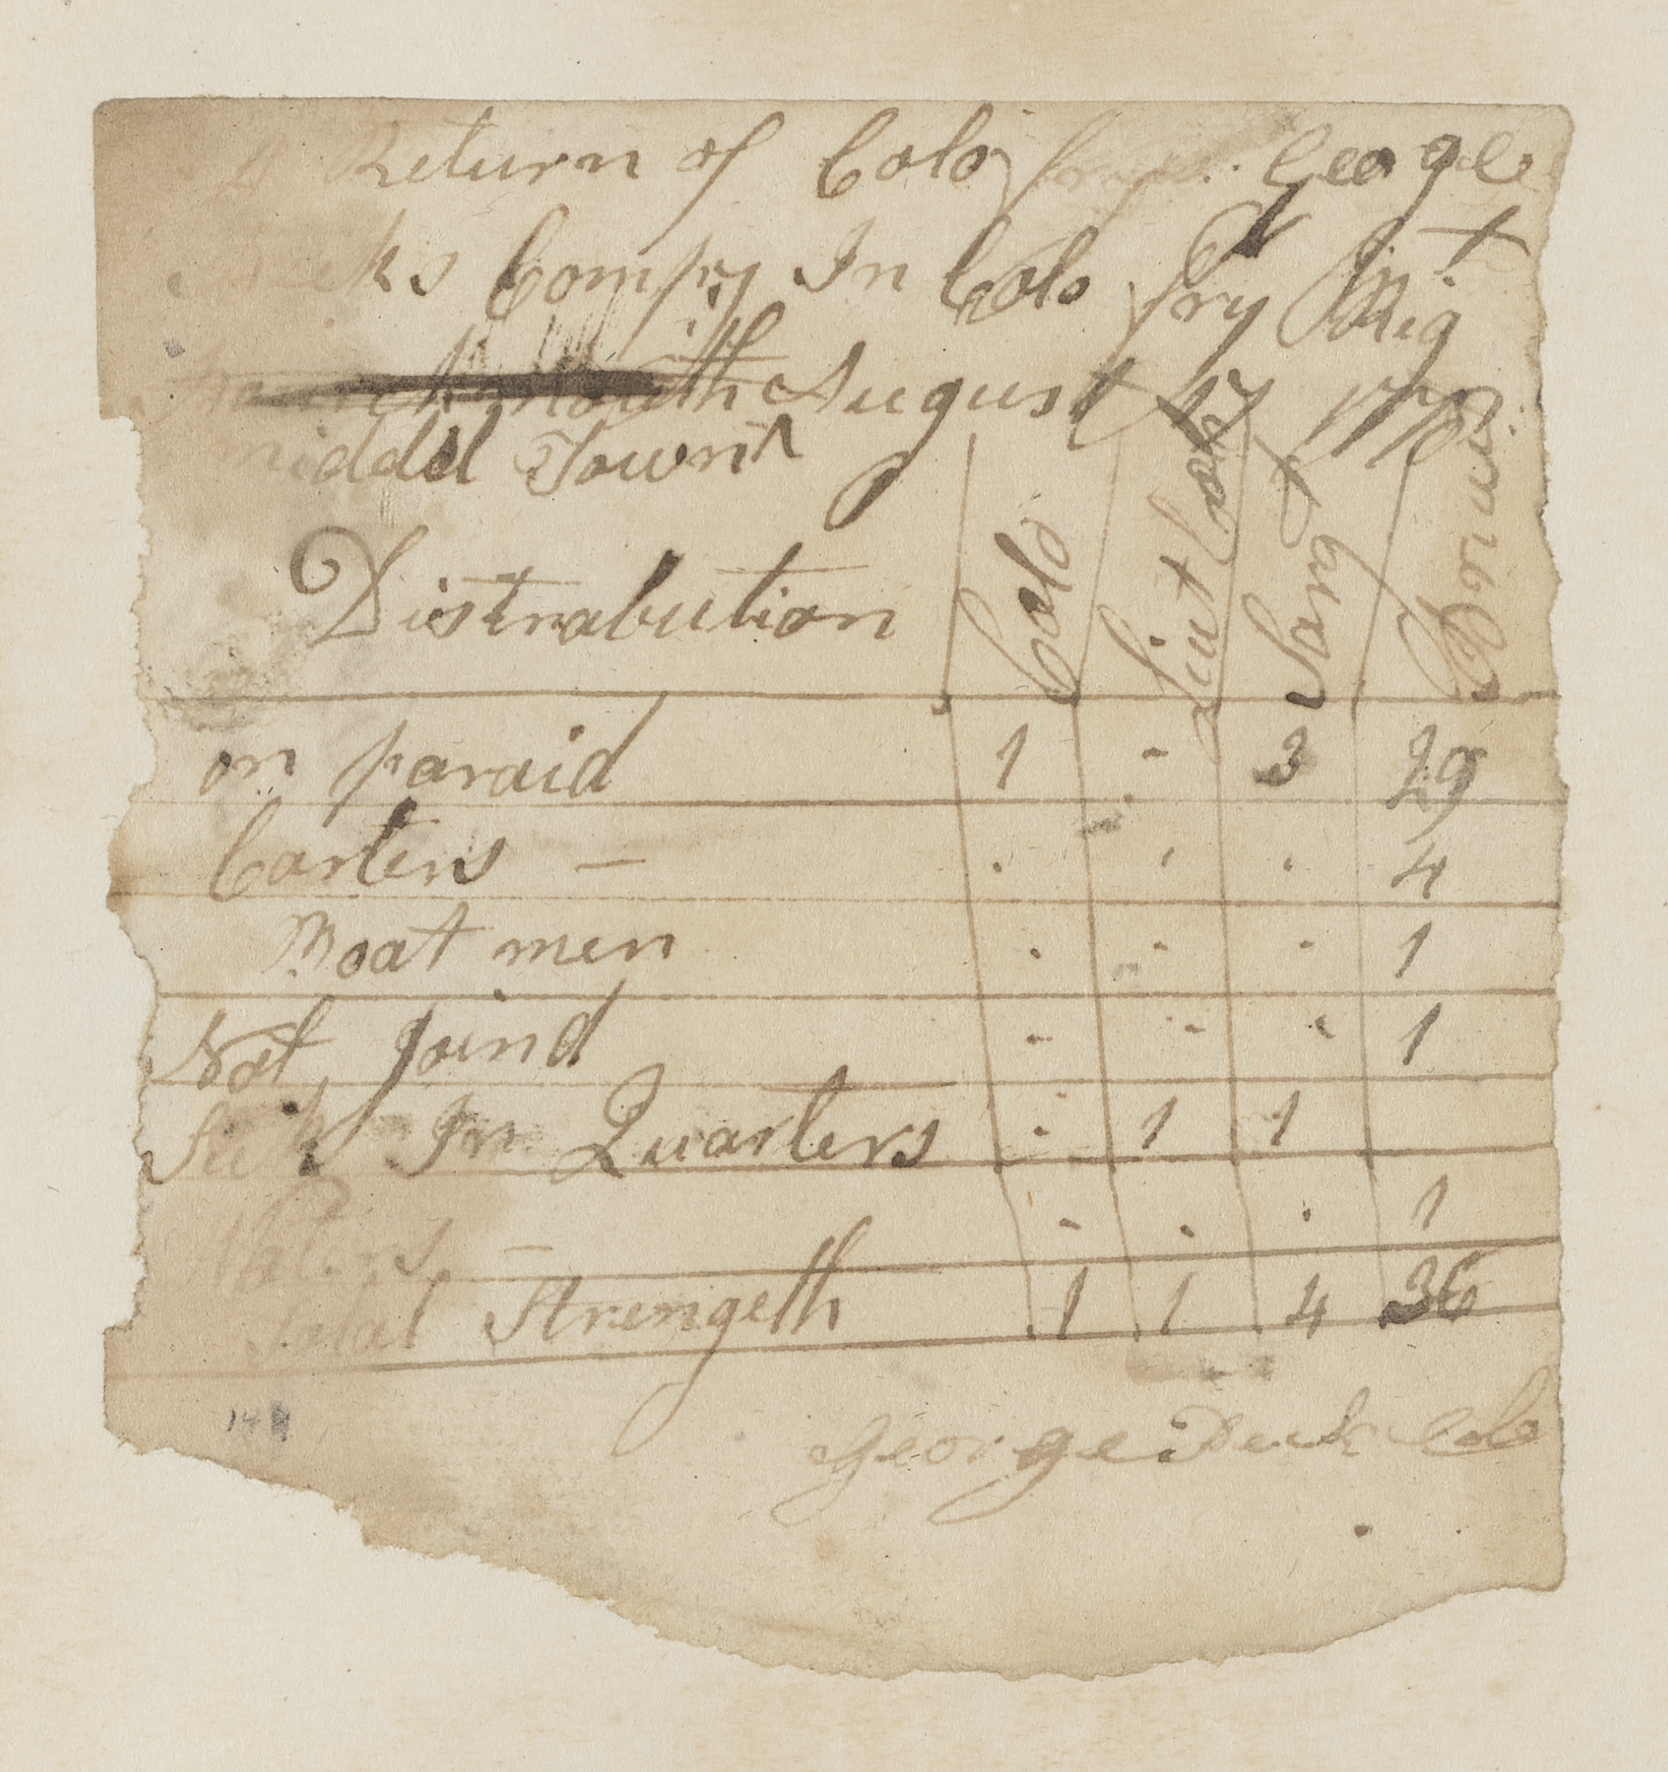 A Return of Colo George
Comp,y In Colo fry Rig,t
August 17 1778
middel Town
Distrabution Colo Liut Colo Sarg Privat
on paraid 1 - 3 29
Carters — . . . 4
Boat men . - . 1
Not Joind - - - 1
Sick In Quarters . 1 1
Waters — - . . 1
Total Strengeth 1 1 4 36
George Peck Colo